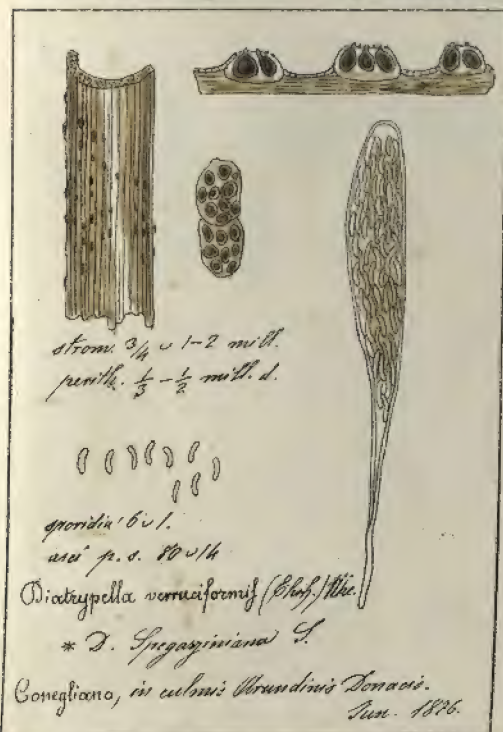 strom. 3/4 ⌣ 1-2 mill.
perith. 1/3 - 1/2 mill. d.
sporidia 6 ⌣ 1.
asci p. s. 80 ⌣ 14
Diatrypella verruciformis (Ehrh.) Nke.
* D. Spegazziniana S.
Conegliano, in culmis Arundinis Donacis.
Jun. 1876.